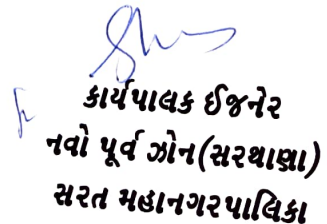 કાર્યપાલક ઈજનેર
નવો પૂર્વ ઝોન(સરથાણા)
સરત મહાનગરપાલિકા